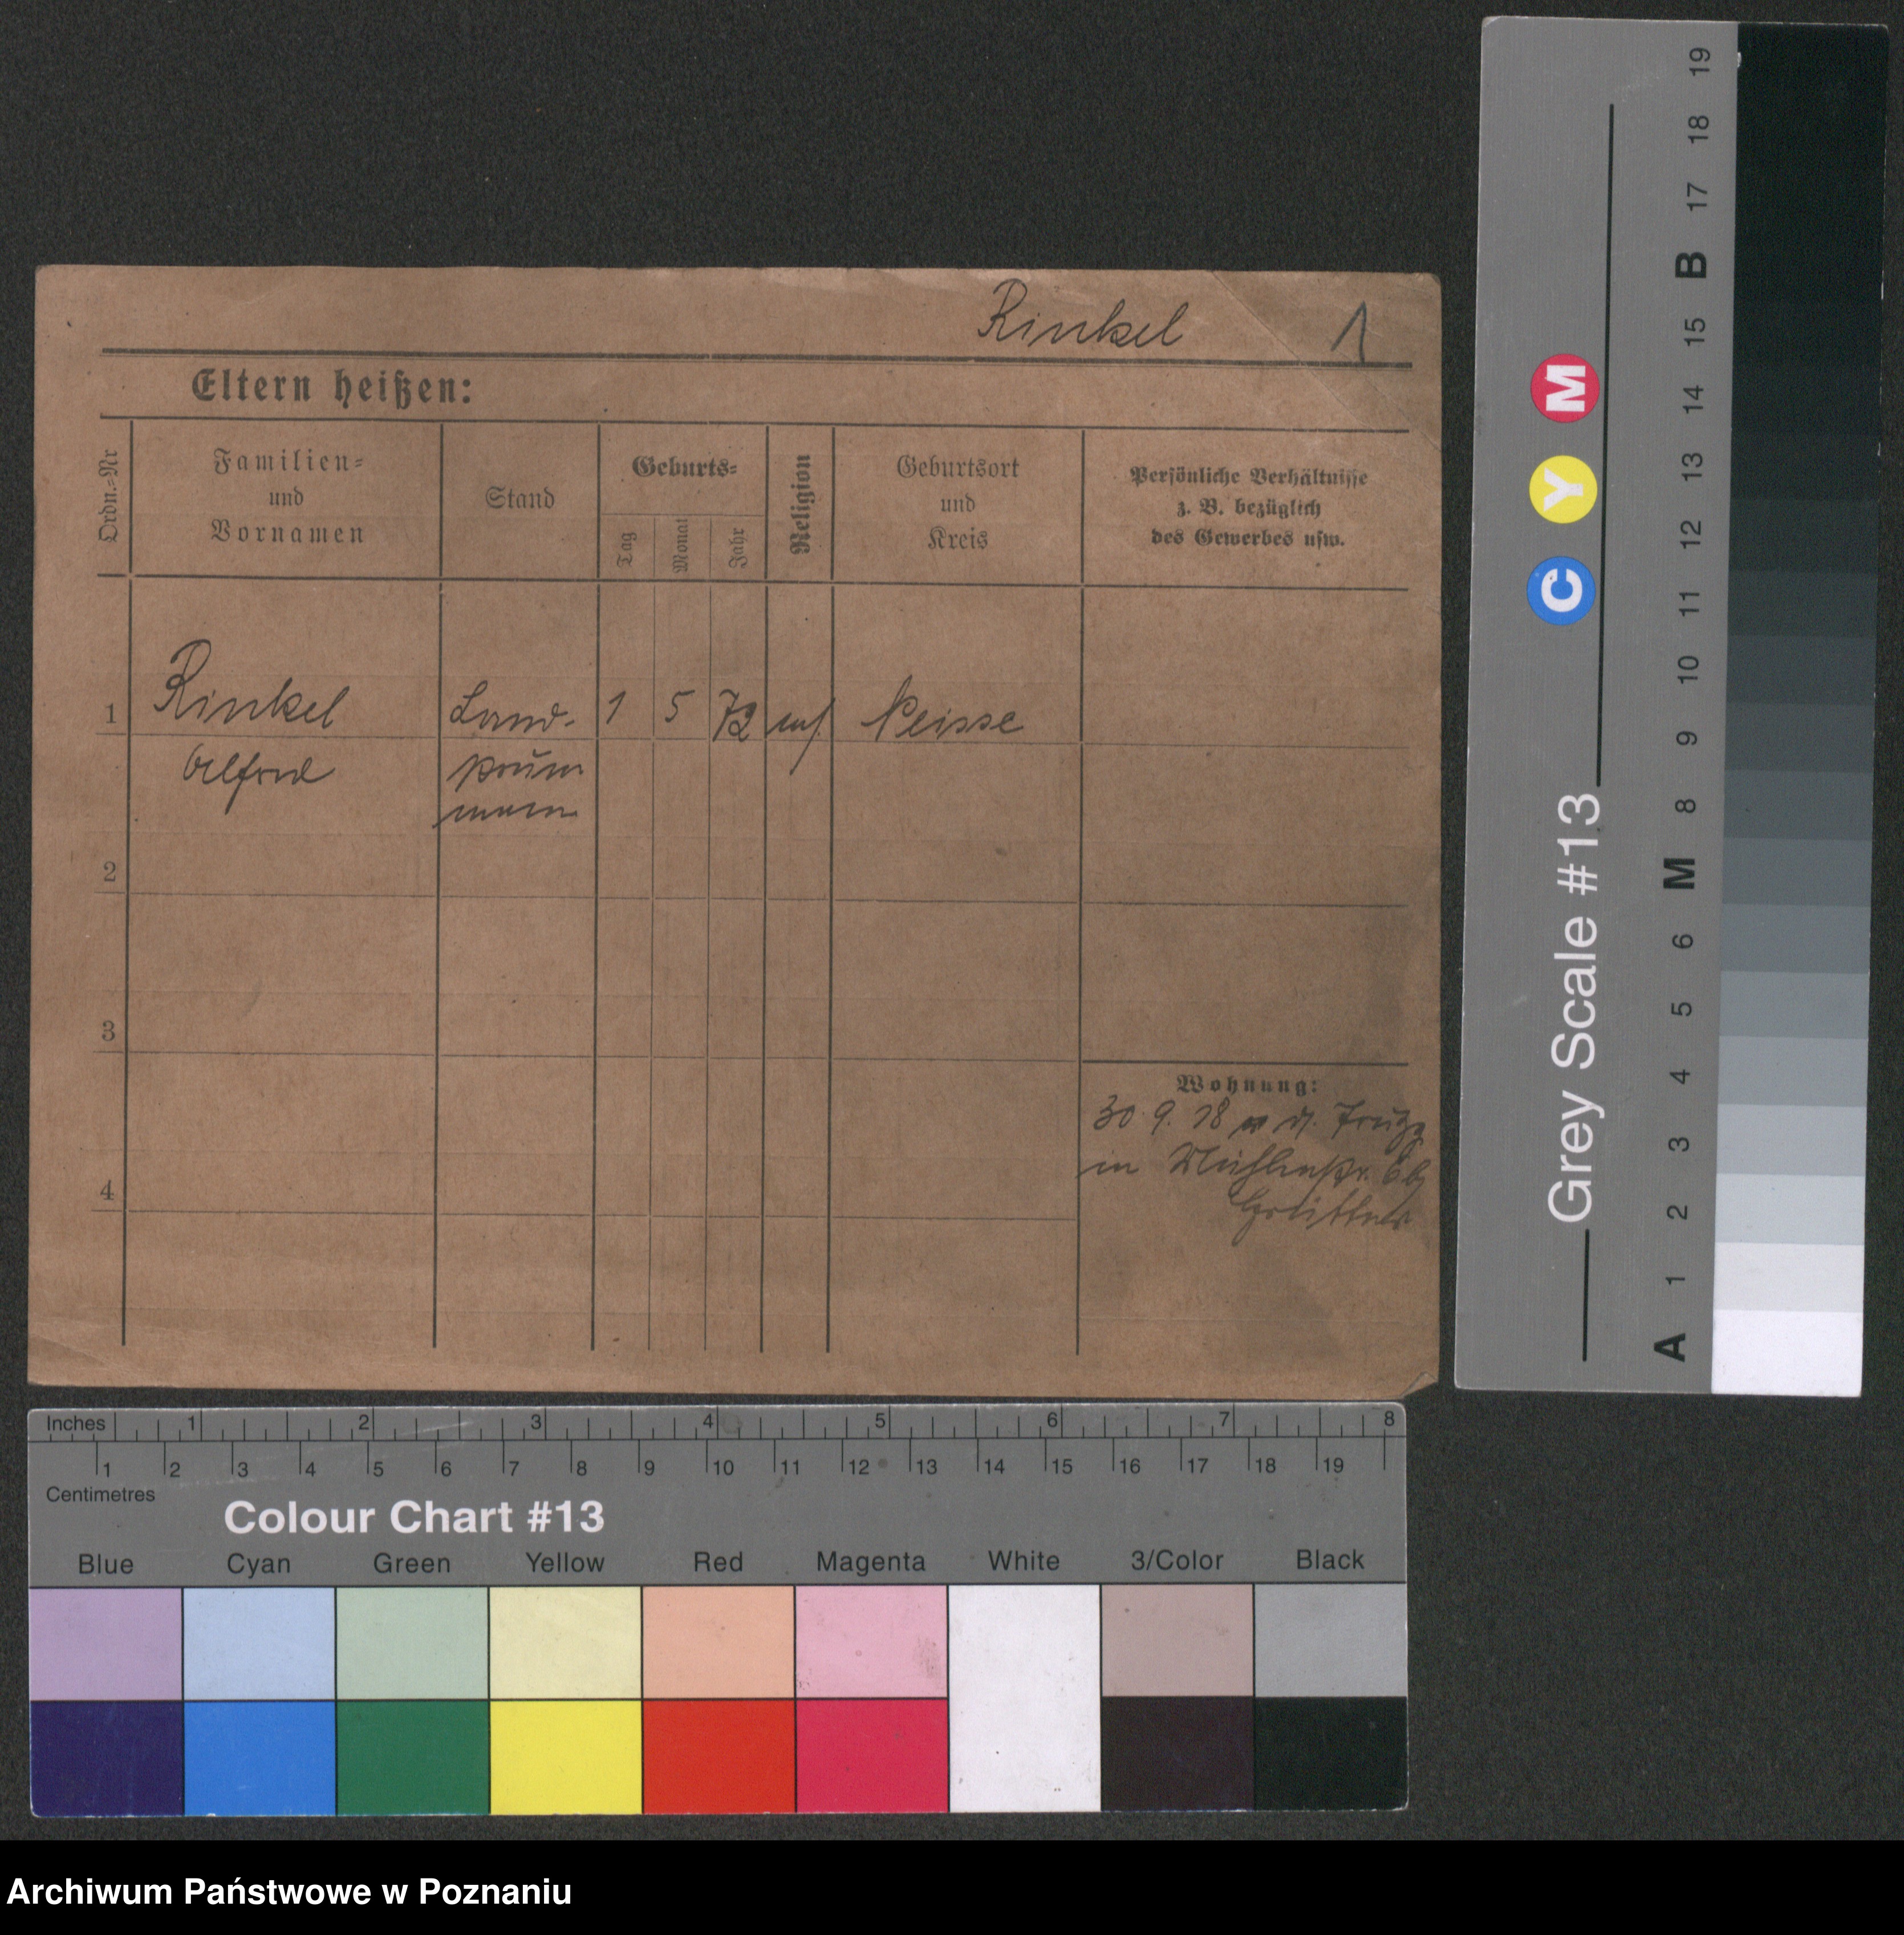 Rinkel 1
Eltern heißen:
Ordn.=Nr
Familien=
und
Vornamen
Stand
Geburts=
Tag
Monat
Jahr
Religion
Geburtsort
und
Kreis
Persönliche Verhältnisse
z. B. bezüglich
des Gewerbes usw.
1 Rinkel Land- 1 5 72 Neisse
Alfred
2
3
4
Wohnung:
30. 9. 18
in Mühlenstr.
Grey Scale #13
C Y M
A 1 2 3 4 5 6 M 8 9 10 11 12 13 14 15 B 17 18 19
Inches 1 2 3 4 5 6 7 8
1 2 3 4 5 6 7 8 9 10 11 12 13 14 15 16 17 18 19
Centimetres
Colour Chart #13
Blue Cyan Green Yellow Red Magenta White 3/Color Black
Archiwum Państwowe w Poznaniu